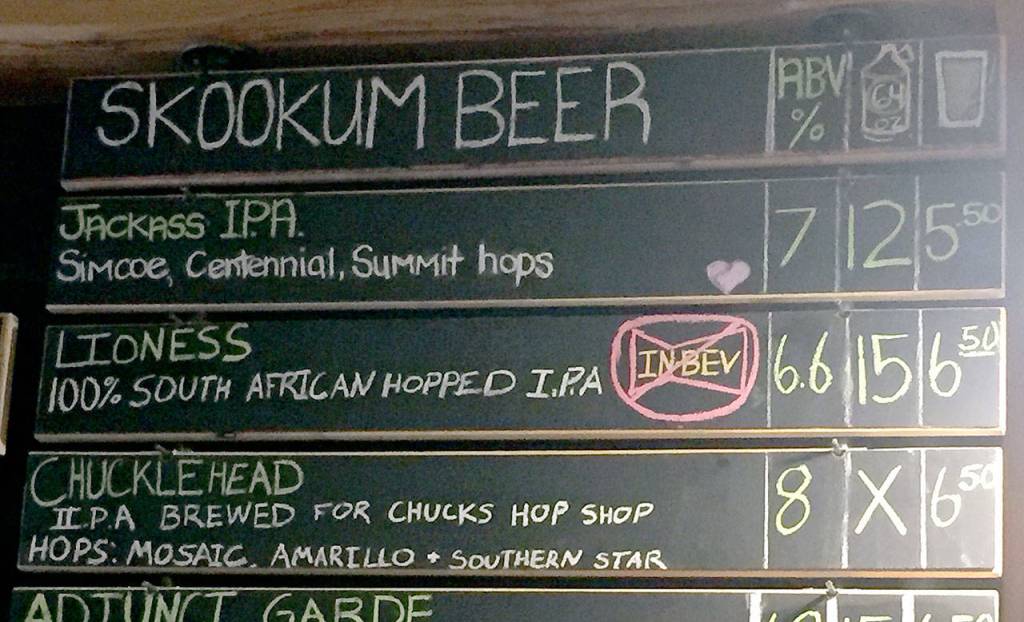 SKOOKUM BEER ABV % 64 OZ
JACKASS I.P.A. 7 12 5.50
Simcoe, Centennial, Summit hops
LIONESS INBEV 6.6 15 6 50
100% SOUTH AFRICAN HOPPED I.P.A
CHUCKLEHEAD 8 X 6 50
II.P.A BREWED FOR CHUCKS HOP SHOP
HOPS: MOSAIC, AMARILLO + SOUTHERN STAR
ADJUNCT GARDE